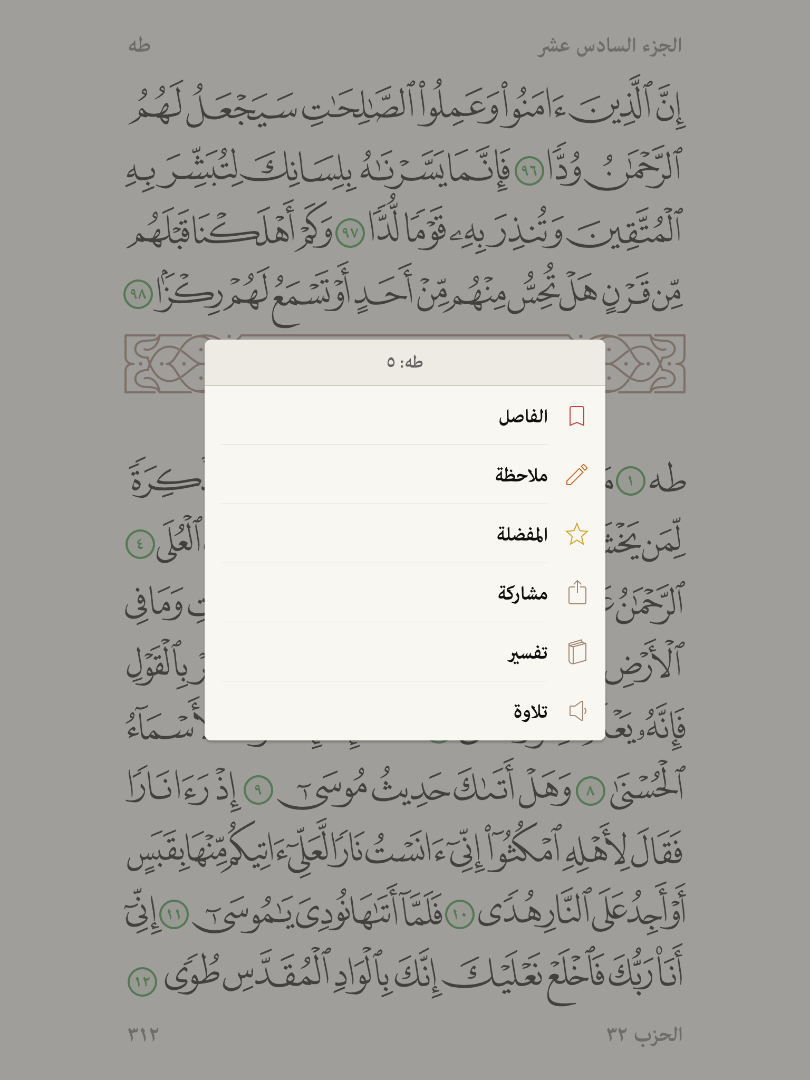 الجزء السادس عشر
طه
إِنَّ ٱلَّذِينَ ءَامَنُوا۟ وَعَمِلُوا۟ ٱلصَّٰلِحَٰتِ سَيَجْعَلُ لَهُمُ
ٱلرَّحْمَٰنُ وُدًّا ٩٦ فَإِنَّمَا يَسَّرْنَٰهُ بِلِسَانِكَ لِتُبَشِّرَ بِهِ
ٱلْمُتَّقِينَ وَتُنذِرَ بِهِۦ قَوْمًا لُّدًّا ٩٧ وَكَمْ أَهْلَكْنَا قَبْلَهُم
مِّن قَرْنٍ هَلْ تُحِسُّ مِنْهُم مِّنْ أَحَدٍ أَوْ تَسْمَعُ لَهُمْ رِكْزًۢا ٩٨
طه: ٥
الفاصل
ملاحظة
المفضلة
مشاركة
تفسير
تلاوة
طه ١
لِّمَن ٱلْعُلَى ٤
ٱلرَّحْمَٰنُ وَمَا فِى
ٱلْأَرْضِ بِٱلْقَوْلِ
فَإِنَّهُۥ
ٱلْحُسْنَىٰ ٨ وَهَلْ أَتَىٰكَ حَدِيثُ مُوسَىٰٓ ٩ إِذْ رَءَا نَارًا
فَقَالَ لِأَهْلِهِ ٱمْكُثُوٓا۟ إِنِّىٓ ءَانَسْتُ نَارًا لَّعَلِّىٓ ءَاتِيكُم مِّنْهَا بِقَبَسٍ
أَوْ أَجِدُ عَلَى ٱلنَّارِ هُدًى ١٠ فَلَمَّآ أَتَىٰهَا نُودِىَ يَٰمُوسَىٰٓ ١١ إِنِّىٓ
أَنَا۠ رَبُّكَ فَٱخْلَعْ نَعْلَيْكَ إِنَّكَ بِٱلْوَادِ ٱلْمُقَدَّسِ طُوًى ١٢
الحزب ٣٢
٣١٢